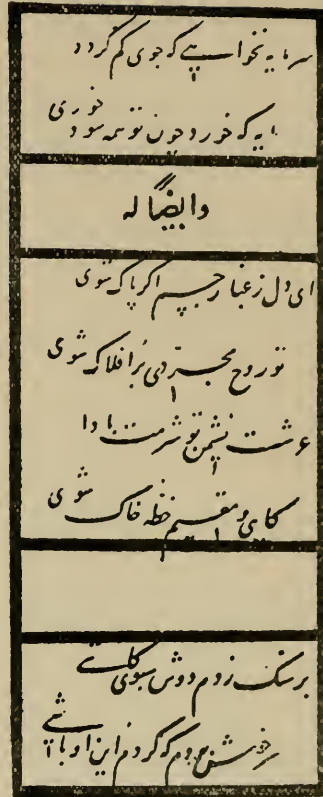 سرمایه نخواهی که جوی کم گردد
مایه که خورد چون تو نه سود خوری
وایضاً له
ای دل ز غبار جسم اگر پاک شوی
تو روح مجردی بر افلاک شوی
عرشست نشیمن تو شرمت بادا
کایی و مقیم خطه خاک شوی
بر سنگ زدم دوش سبوی کاشی
سرخوش بودم که کردم این اوباشی